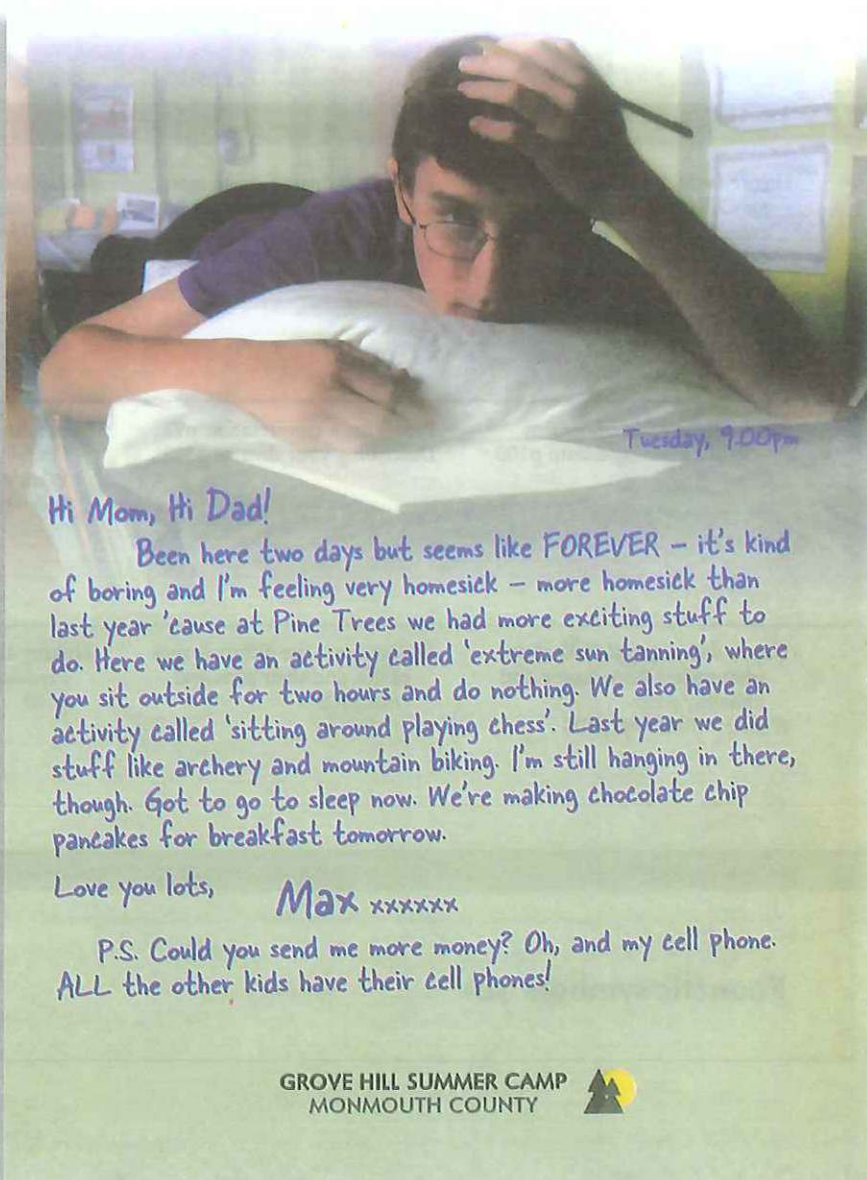 Tuesday, 9.00pm
Hi Mom, Hi Dad!
Been here two days but seems like FOREVER – it's kind
of boring and I'm feeling very homesick – more homesick than
last year 'cause at Pine Trees we had more exciting stuff to
do. Here we have an activity called 'extreme sun tanning', where
you sit outside for two hours and do nothing. We also have an
activity called 'sitting around playing chess'. Last year we did
stuff like archery and mountain biking. I'm still hanging in there,
though. Got to go to sleep now. We're making chocolate chip
pancakes for breakfast tomorrow.
Love you lots, Max xxxxxx
P.S. Could you send me more money? Oh, and my cell phone.
ALL the other kids have their cell phones!
GROVE HILL SUMMER CAMP
MONMOUTH COUNTY